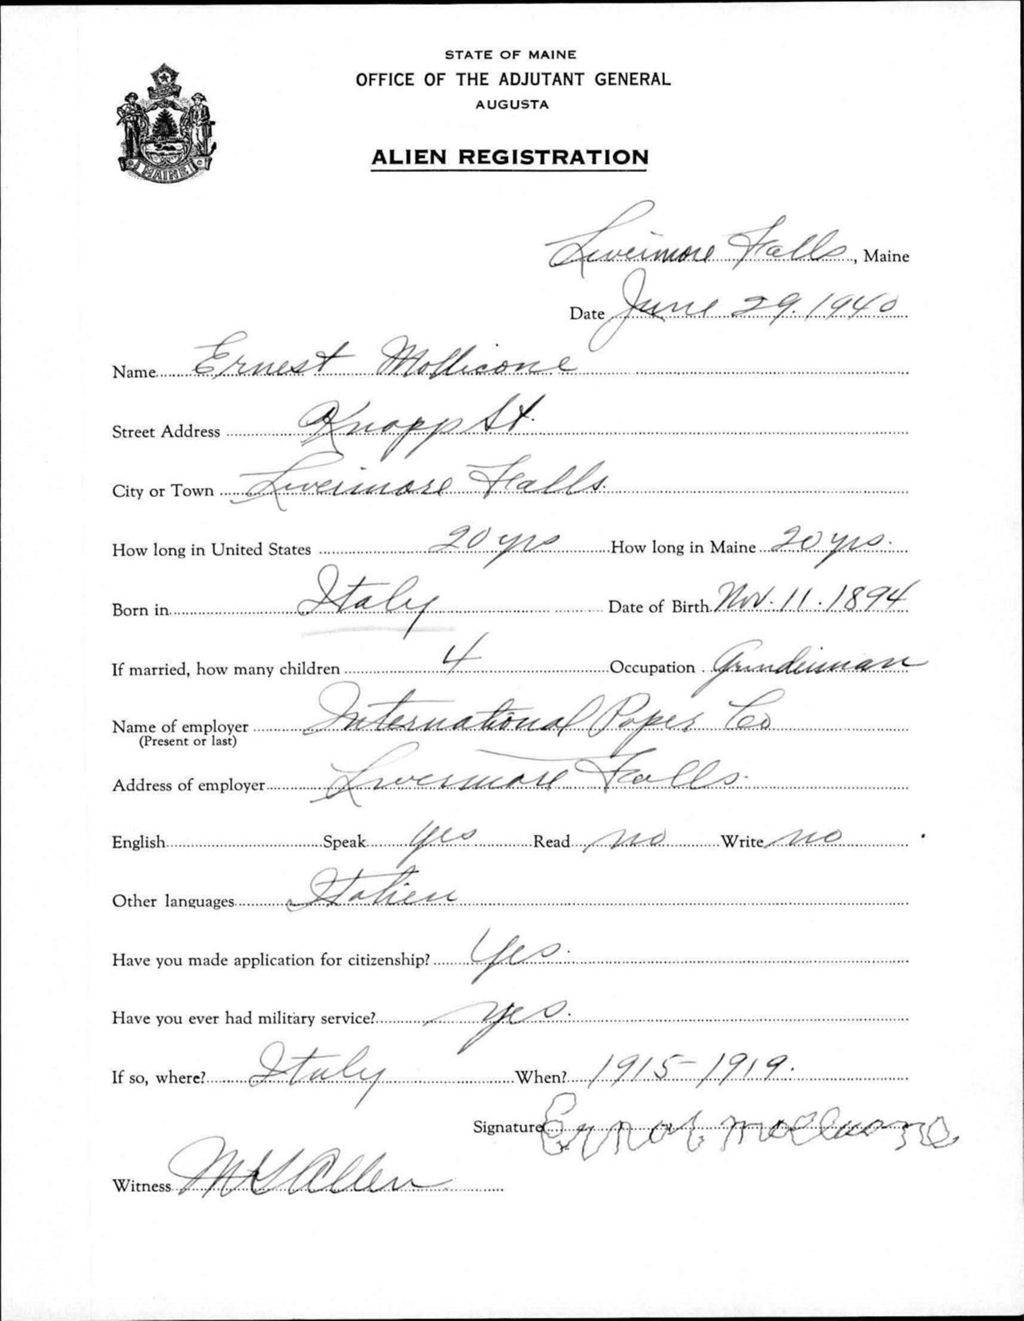 STATE OF MAINE
OFFICE OF THE ADJUTANT GENERAL
AUGUSTA
ALIEN REGISTRATION
MAINE
Livermore Falls, Maine
Date June 29. 1940
Name Ernest Mollicone
Street Address Knapp St.
City or Town Livermore Falls.
How long in United States 20 yrs How long in Maine 20 yrs.
Born in Italy Date of Birth Nov. 11. 1894
If married, how many children 4 Occupation Grinderman
Name of employer International Paper Co
(Present or last)
Address of employer Livermore Falls.
English Speak yes Read no Write no
Other languages Italien
Have you made application for citizenship? Yes.
Have you ever had military service? yes.
If so, where? Italy When? 1915-1919.
Signature Mollicone
Witness Allen